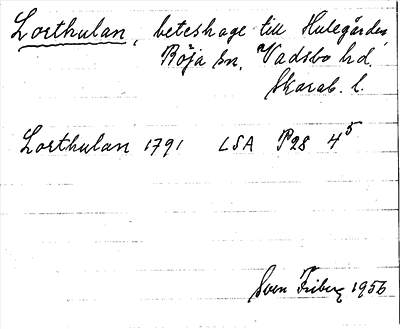 Lorthulan, beteshage till Hulegården,
Böja sn, Vadsbo hd,
Skarab. l.
Lorthulan 1791 LSA P28 4⁵
Sven Friberg 1956